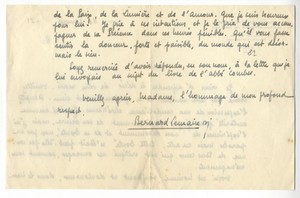 de la Paix, de la Lumière et de l'amour. Que je suis heureux
pour lui. Je prie à ses intentions et je le prie de vous accom-
pagner de sa Présence dans ces heures pénibles, qu'il vous fasse
sentir la douceur, forte et paisible, du monde qui est désor-
mais le sien.
Soyez remerciée d'avoir répondu, en son nom, à la lettre que je
lui envoyais au sujet du livre de l'abbé Combes.
Veuillez agréer, Madame, l'hommage de mon profond
respect.
Bernard Lemaire